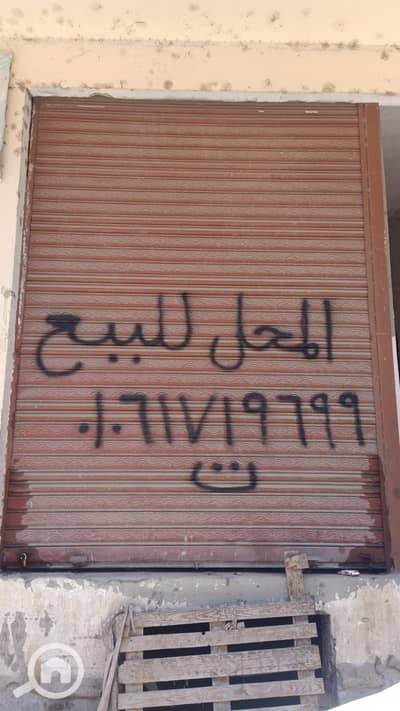 المحل للبيع
٠١٠٦١٧١٩٦٩٩
ت